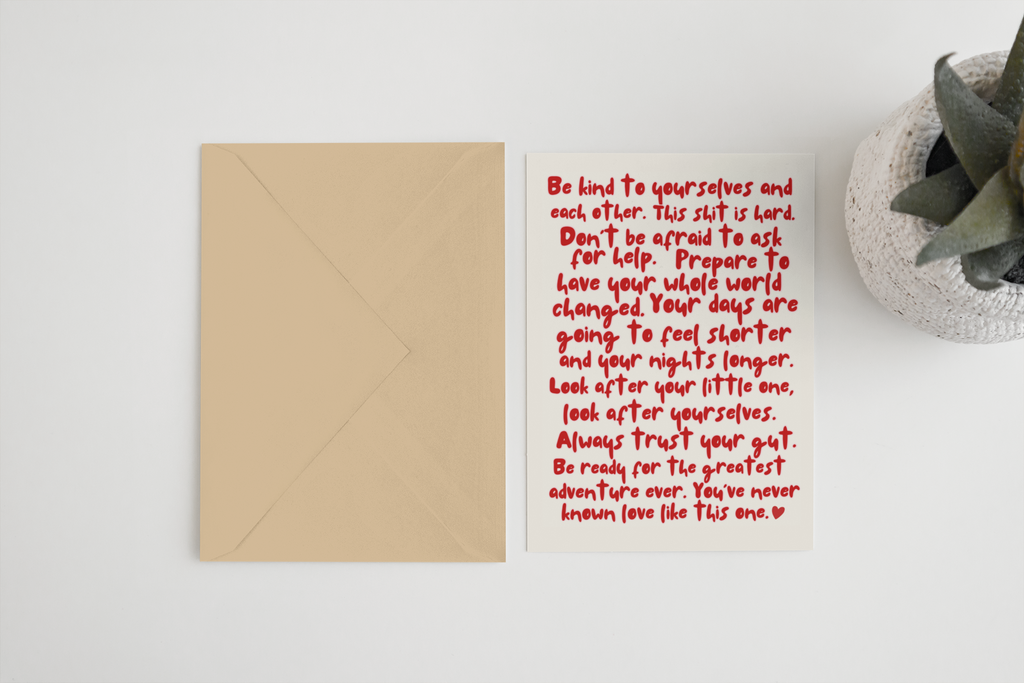 Be kind to yourselves and
each other. This shit is hard.
Don't be afraid to ask
for help. Prepare to
have your whole world
changed. Your days are
going to feel shorter
and your nights longer.
Look after your little one,
look after yourselves.
Always trust your gut.
Be ready for the greatest
adventure ever. You've never
known love like this one.♥